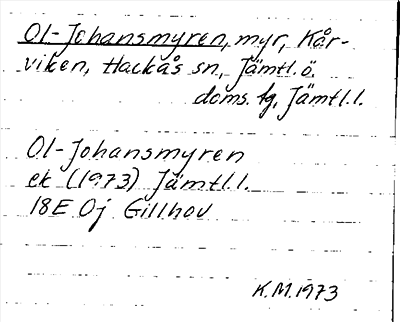 Ol-Johansmyren, myr, Kår-
viken, Hackås sn, Jämtl. ö.
doms. fg, Jämtl. l.
Ol-Johansmyren
ek (1973) Jämtl. l.
18E Oj Gillhov
K.M. 1973